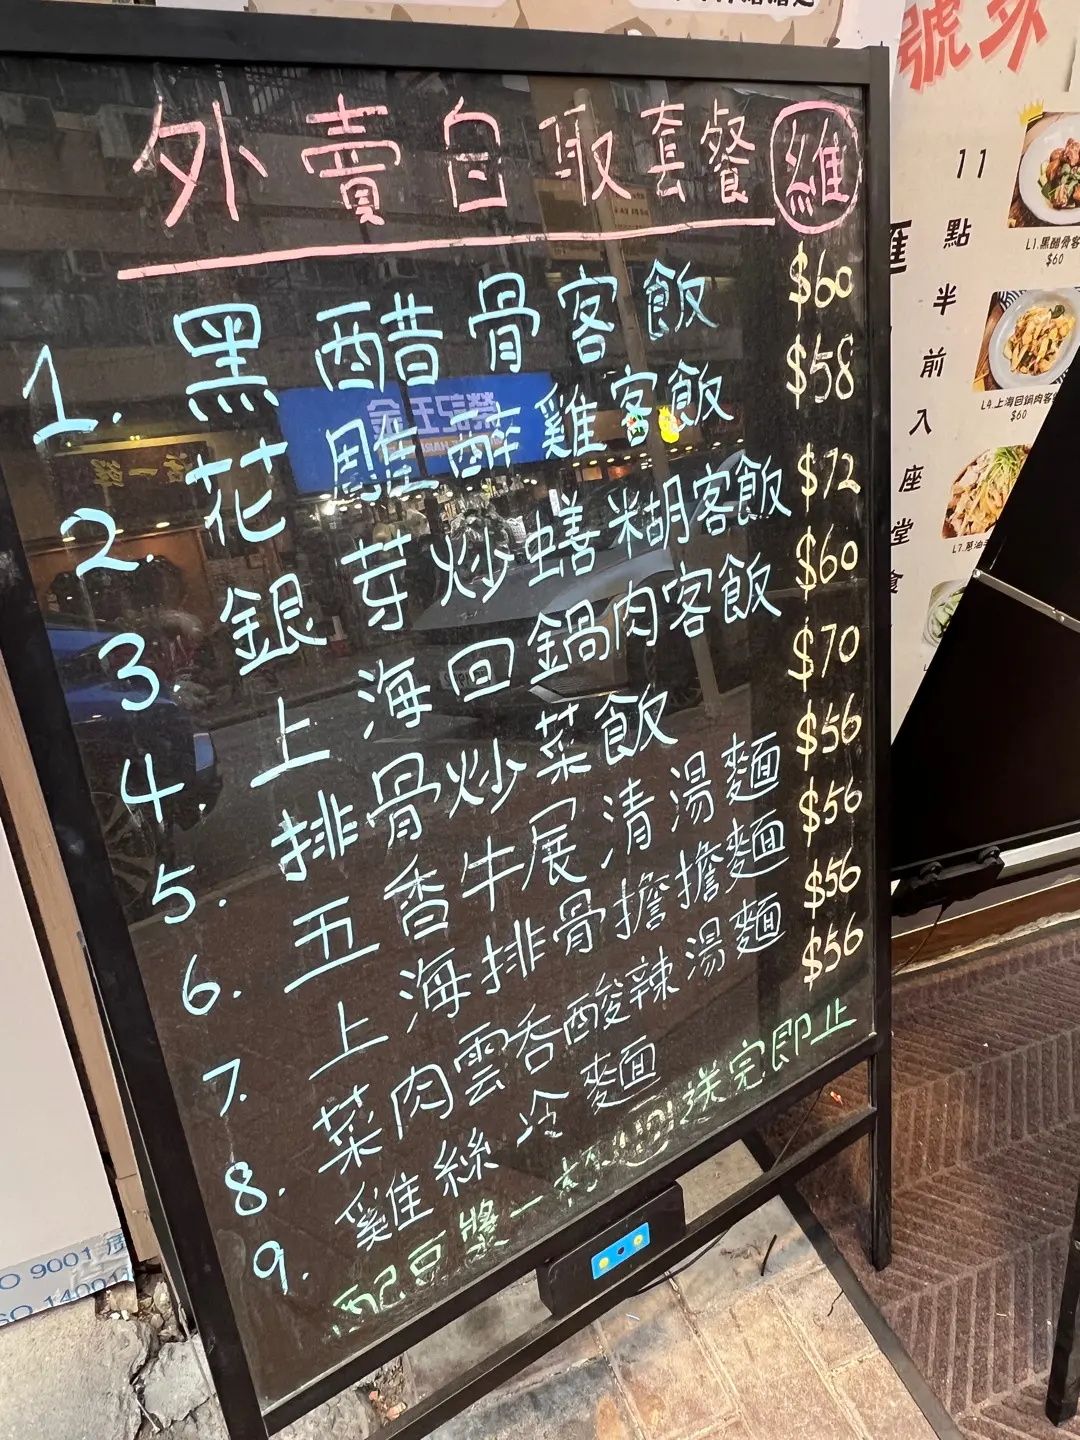 外賣自取套餐 維
1. 黑醋骨客飯 $60
2. 花雕醉雞客飯 $58
3. 銀芽炒蟮糊客飯 $72
4. 上海回鍋肉客飯 $60
5. 排骨炒菜飯 $70
6. 五香牛展清湯麵 $56
7. 上海排骨擔擔麵 $56
8. 菜肉雲吞酸辣湯麵 $56
9. 雞絲冷麵 $56
配豆漿一杯 送完即止
號外
11點半前入座堂食
L1.黑醋骨客
$60
L4.上海回鍋肉客
$60
L7.蔥油
9001
14001